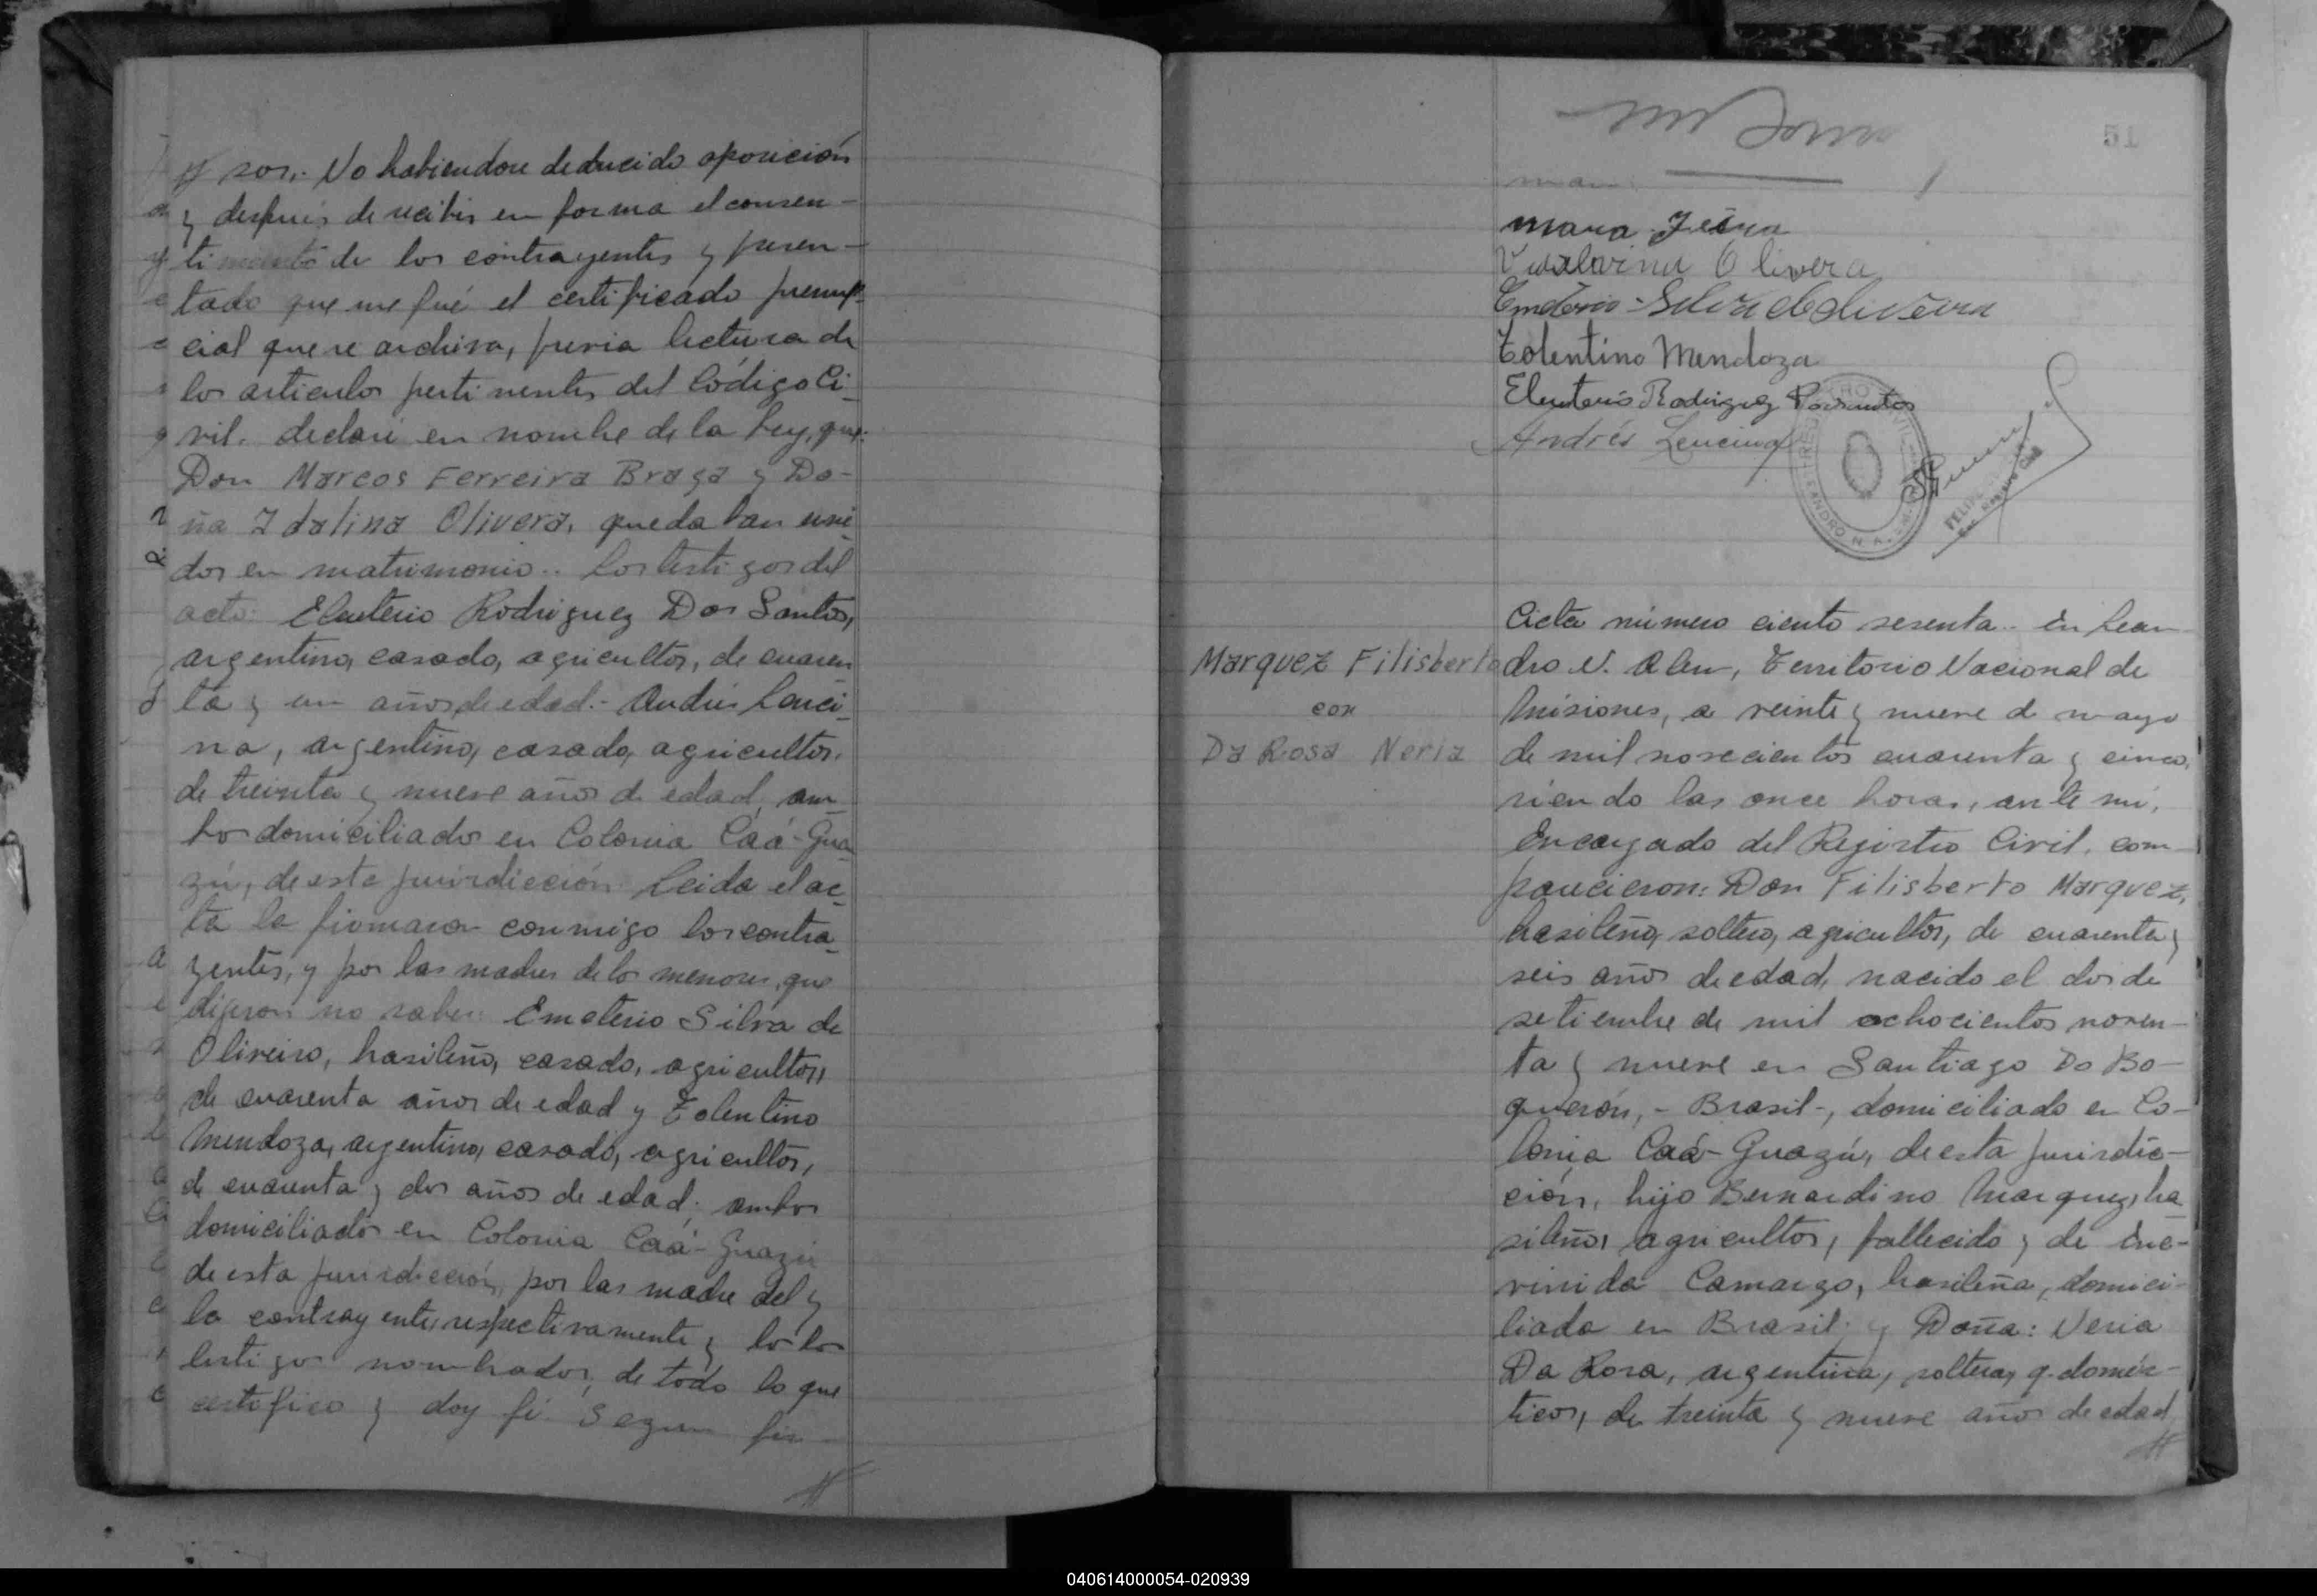 sor.- No habiendose deducido oposición
y después de recibir en forma el consen-
timiento de los contrayentes y presen-
tado que me fué el certificado prenup-
cial que se archiva, previa lectura de
los articulos pertinentes del Código Ci-
vil. declaré en nombre de la Ley, que:
Don Marcos Ferreira Braga y Do-
ña Idalina Olivera, quedaban uni-
dos en matrimonio.. Los testigos del
acto: Eleuterio Rodriguez Dos Santos,
argentino, casado, agricultor, de cuaren
ta y un años de edad.- Andrés Lenci-
na, argentino, casado, agricultor,
de treinta y nueve años de edad, am-
bos domiciliados en Colonia Caá-Gua
zú, de esta jurisdicción. Leida el ac-
ta la firmaron conmigo los contra-
yentes, y por las madres de los menores, que
dijeron no saber: Emeterio Silva de
Oliveira, brasileño, casado, agricultor,
de cuarenta años de edad y Tolentino
Mendoza, argentino, casado, agricultor,
de cuarenta y dos años de edad, ambos
domiciliados en Colonia Caá-Guazú
de esta jurisdicción, por las madre del y
la contrayente, respectivamente y los los
testigos nombrados, de todo lo que
certifico y doy fé. Segun fir-
51
Olivera
Tolentino Mendoza
Eleuterio Rodriguez Dos santos
Andrés Lencina
Marquez Filisberto
con
Da Rosa Neria
Acta número ciento sesenta.- En Lean
dro N. Alem, Territorio Nacional de
Misiones, a veinte y nueve de mayo
de mil novecientos cuarenta y cinco,
siendo las once horas, ante mí,
Encargado del Registro Civil, com-
parecieron: Don Filisberto Marquez,
brasileño, soltero, agricultor, de cuarenta y
seis años de edad, nacido el dos de
setiembre de mil ochocientos noven-
ta y nueve en Santiago Do Bo-
querón, - Brasil-, domiciliado en Co-
lonia Caá-Guazú, de esta jurisdic-
ción, hijo Bernardino Marquez, bra
sileño, agricultor, fallecido y de
Camargo, brasileña, domici-
liada en Brasil; y Doña: Neria
Da Rosa, argentina, soltera, q. domés-
ticos, de treinta y nueve años de edad,
040614000054-020939